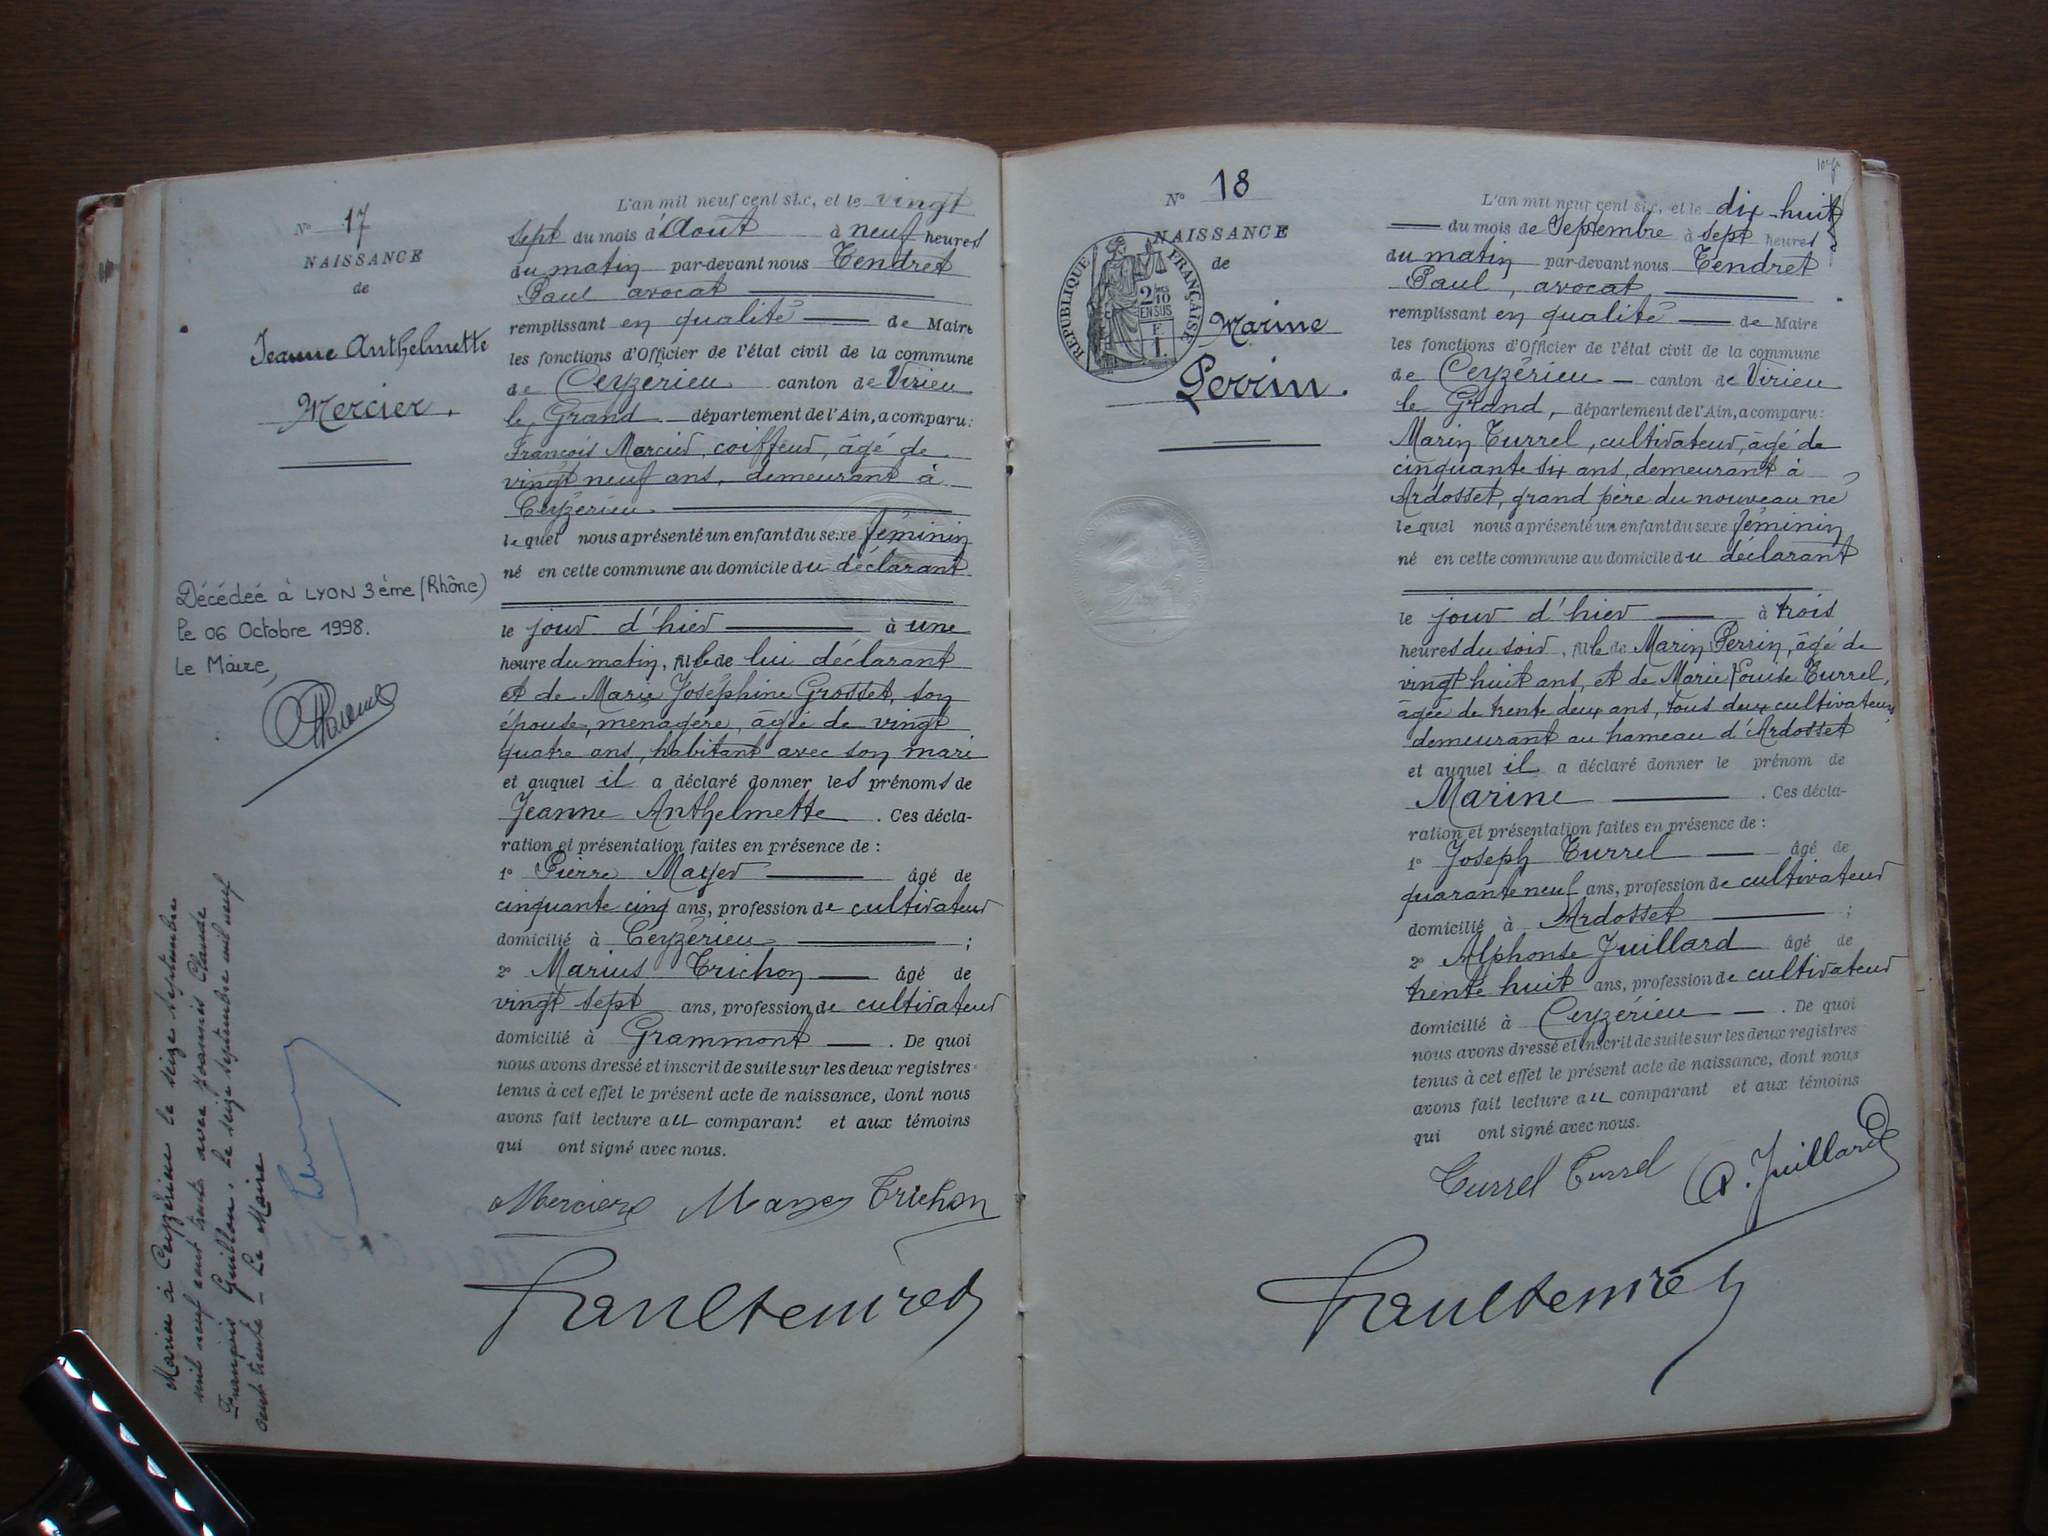 N° 17
NAISSANCE
de
Jeanne Anthelmette
Mercier.
Décédée à LYON 3ème (Rhône)
le 06 Octobre 1998.
Le Maire,
Marié à Ceyzérieu le seize septembre
mil neuf cent trente avec Joannès Claude
François Guillon. Le seize septembre mil neuf
cent trente - Le Maire
L'an mil neuf cent six, et le vingt
sept du mois d'Août à neuf heures
du matin par-devant nous Tendret
Paul avocat
remplissant en qualité de Maire
les fonctions d'Officier de l'état civil de la commune
de Ceyzérieu canton de Virieu
le Grand département de l'Ain, a comparu:
François Mercier, coiffeur, âgé de
vingt neuf ans, demeurant à
Ceyzérieu
lequel nous a présenté un enfant du sexe féminin
né en cette commune au domicile du déclarant
le jour d'hier à une
heure du matin, fille de lui déclarant
et de Marie Joséphine Grosset, son
épouse, ménagère, âgée de vingt
quatre ans, habitant avec son mari
et auquel il a déclaré donner les prénoms de
Jeanne Anthelmette . Ces décla-
ration et présentation faites en présence de :
1° Pierre Mayer âgé de
cinquante cinq ans, profession de cultivateur
domicilié à Ceyzérieu ;
2° Marius Trichon âgé de
vingt sept ans, profession de cultivateur
domicilié à Grammont . De quoi
nous avons dressé et inscrit de suite sur les deux registres
tenus à cet effet le présent acte de naissance, dont nous
avons fait lecture au comparant et aux témoins
qui ont signé avec nous.
Mercier Trichon
N° 18
NAISSANCE
de
RÉPUBLIQUE FRANÇAISE
2/10 EN SUS
F.
1.
Marine
Perrin.
L'an mil neuf cent six, et le dix-huit
du mois de Septembre à sept heures
du matin par-devant nous Tendret
Paul, avocat
remplissant en qualité de Maire
les fonctions d'Officier de l'état civil de la commune
de Ceyzérieu canton de Virieu
le Grand, département de l'Ain, a comparu:
Marin Turrel, cultivateur, âgé de
cinquante six ans, demeurant à
Ardosset, grand père du nouveau né
lequel nous a présenté un enfant du sexe féminin
né en cette commune au domicile du déclarant
le jour d'hier à trois
heures du soir, fille de Marin Perrin, âgé de
vingt huit ans, et de Marie Louise Turrel,
âgée de trente deux ans, tous deux cultivateurs,
demeurant au hameau d'Ardosset
et auquel il a déclaré donner le prénom de
Marine . Ces décla-
ration et présentation faites en présence de :
1° Joseph Turrel âgé de
quarante neuf ans, profession de cultivateur
domicilié à Ardosset ;
2° Alphonse Juillard âgé de
trente huit ans, profession de cultivateur
domicilié à Ceyzérieu . De quoi
nous avons dressé et inscrit de suite sur les deux registres
tenus à cet effet le présent acte de naissance, dont nous
avons fait lecture au comparant et aux témoins
qui ont signé avec nous.
Turrel Turrel A. Juillard